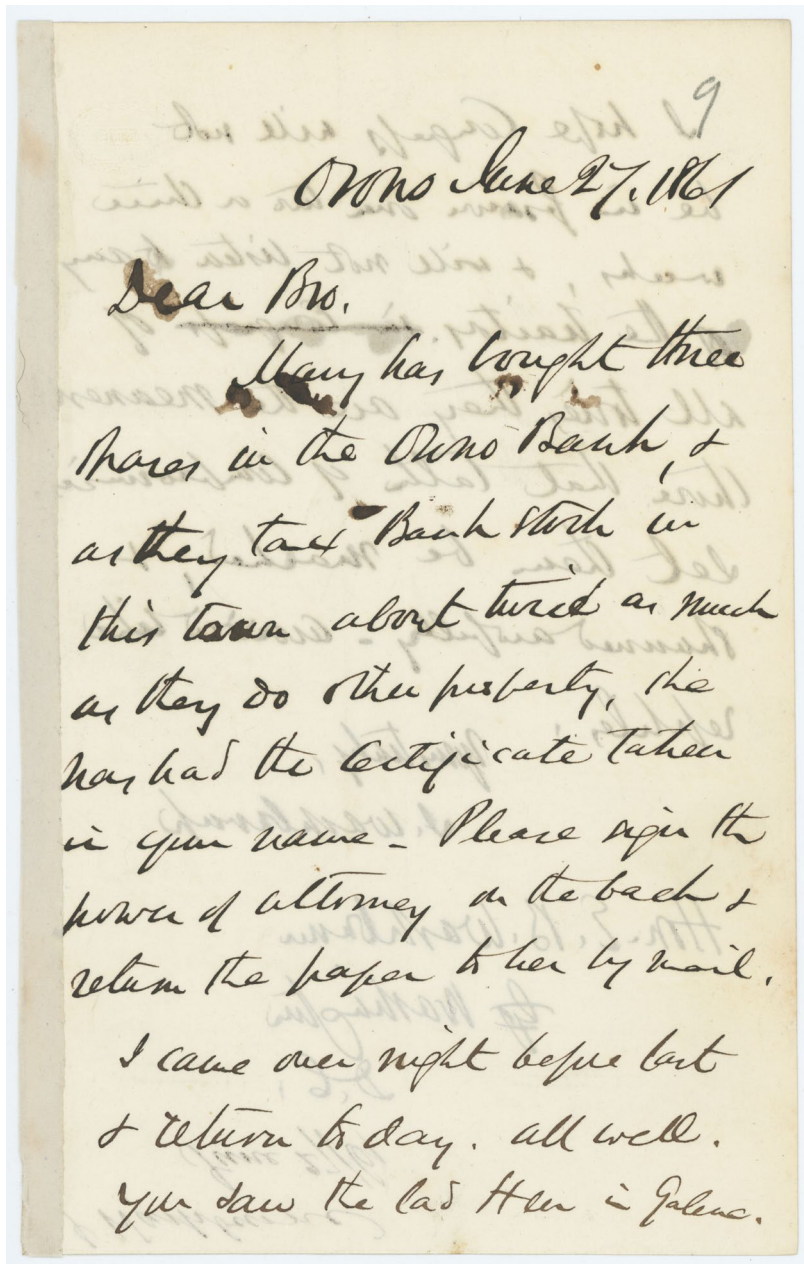 9
Orono June 27, 1861
Dear Bro.
Mary has bought three
shares in the Orono Bank, &
as they tax Bank stock in
this town about twice as much
as they do other property, she
has had the certificate taken
in your name - Please sign the
power of attorney on the back &
return the paper to her by mail.
I came over night before last
& return to day. all well.
You saw the lad in Galena.